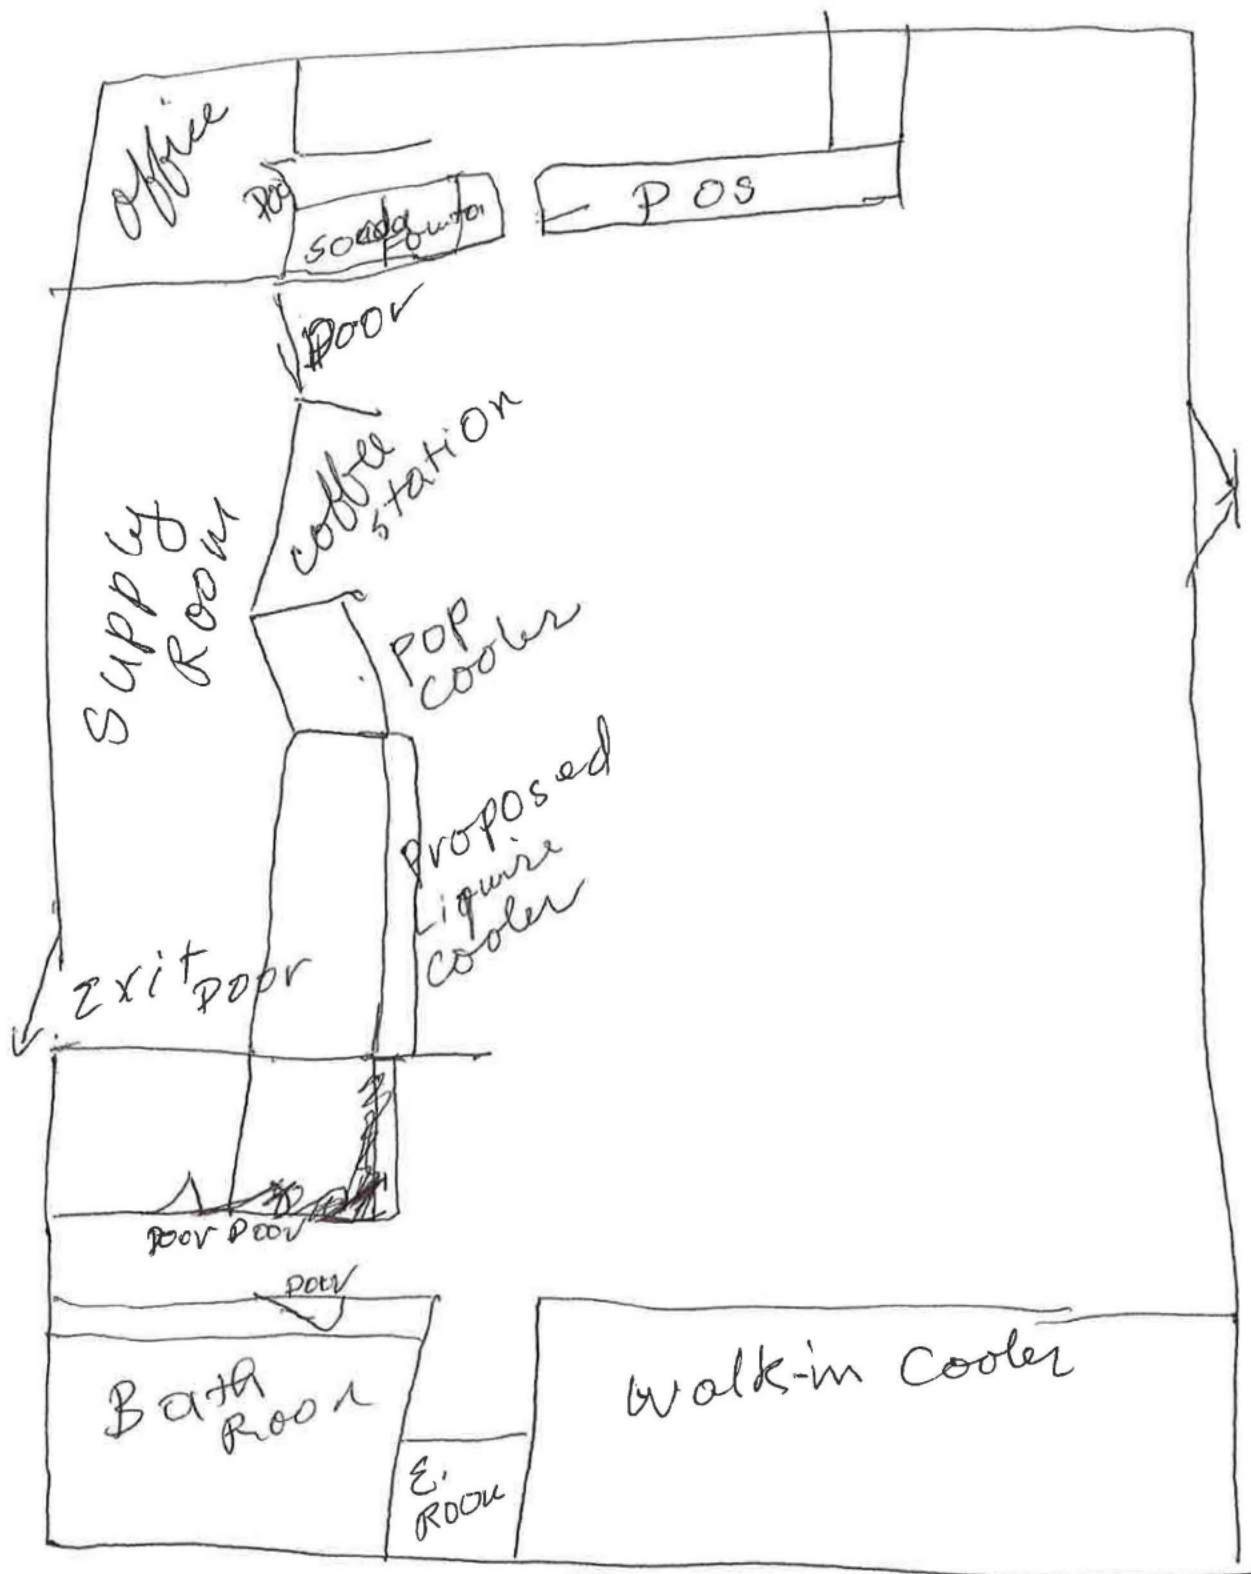 office
Door
Soada
Founta
POS
Door
coffee
station
Supply
Room
POP
cooler
Proposed
Liquire
cooler
Exit
Door
Door Door
Door
Bath
Room
E.
Room
Walk-in Cooler